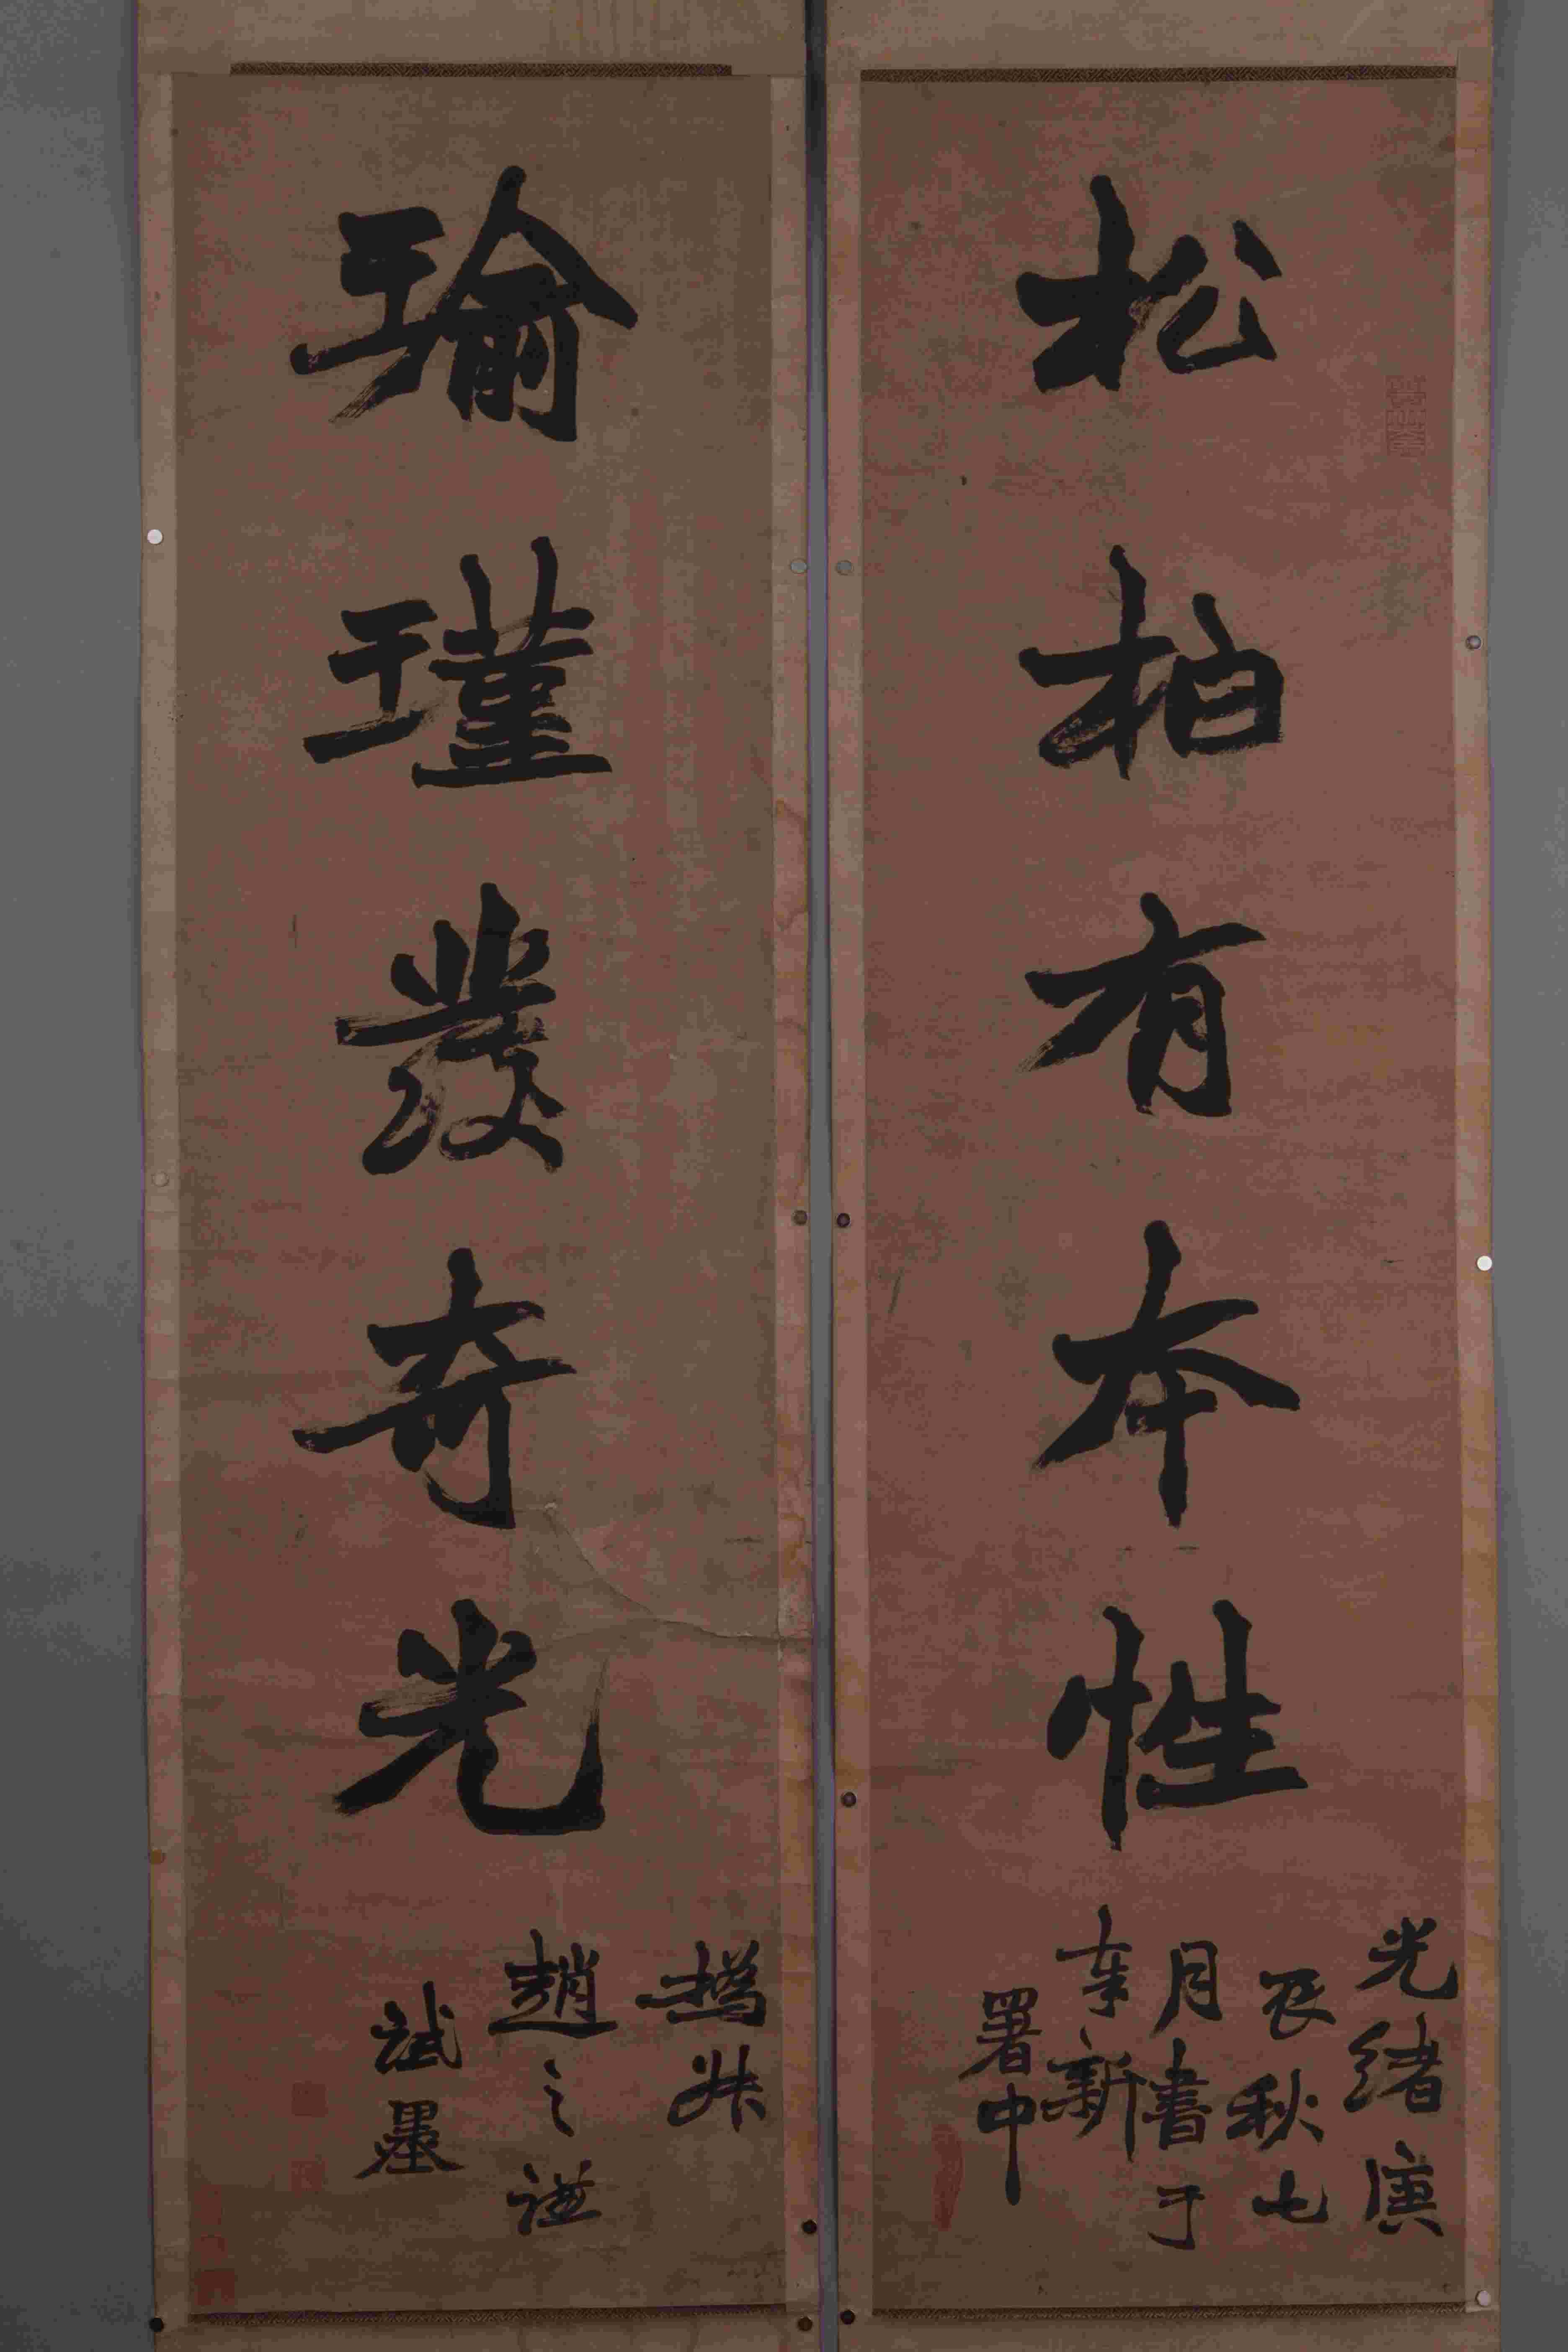 松柏有本性
光緒庚
辰秋七
月書于
奉新
署中
瑜瑾發奇光
撝叔
趙之謙
試墨